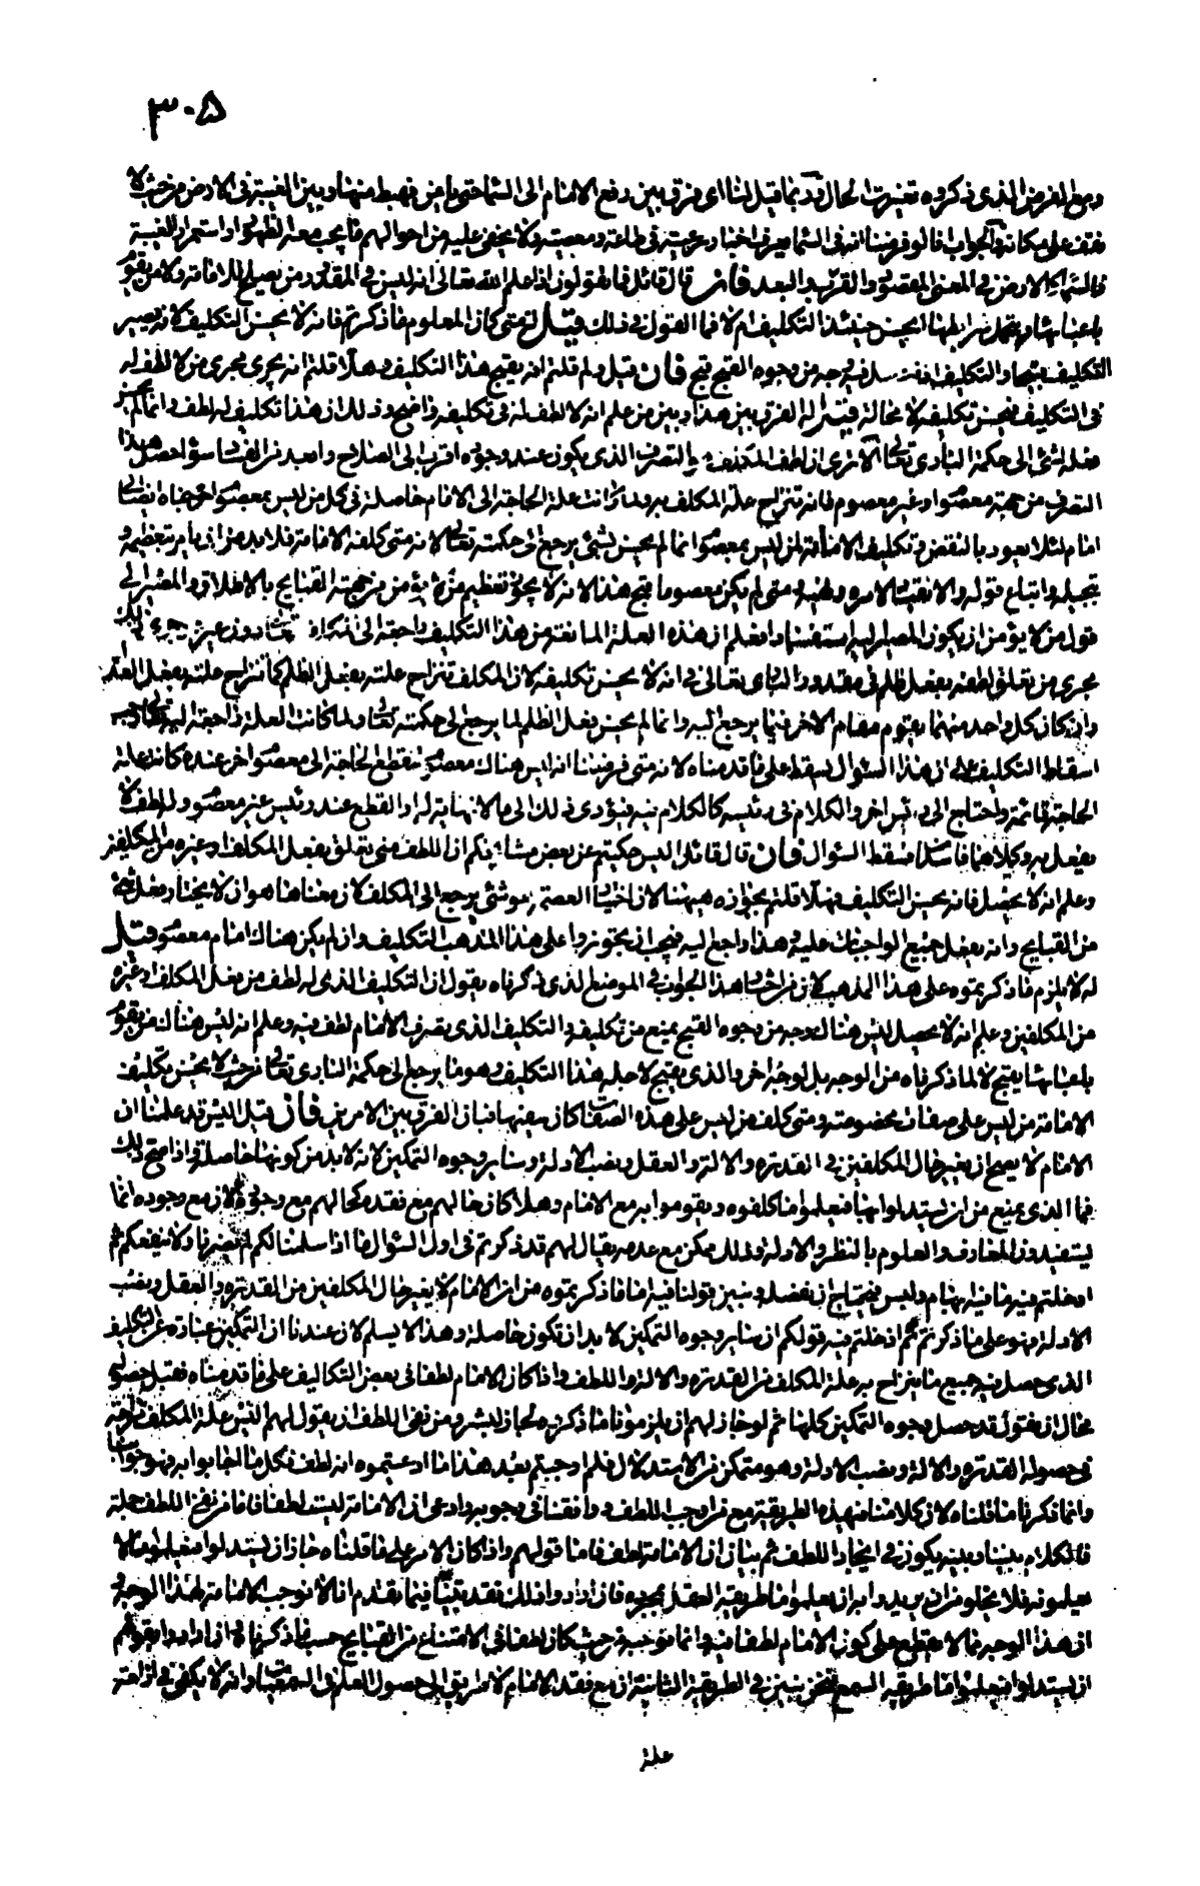 ٣٠۵
ومع الفرض الذى ذكروه تغيرت الحال وربما قيل لنا اى فرق بين رفع الامام الى السماء حتى يأمن فهبط منها وبين الغيبة فى الارض من حيث لا
نقف على مكانه والجواب انا لو فرضنا انه فى السماء يعرف اخبار رعيته فى طاعة ومعصية ولا يخفى عليه من احوالهم ما يجب معه الظهور او استمرار الغيبة
فالسماء كالارض فى المعنى المقصود والقرب والبعد فان قال قائل فما تقولون اذا علم الله تعالى انه ليس فى المقدور من يصلح للامامة ولا من يقوم
باعبائها ويتحمل شرايطها ايحسن حينئذ التكليف ام لا فما القول فى ذلك قيل له متى كان المعلوم ما ذكرتم فانه لا يحسن التكليف لانه يصير
التكليف قبيحا والتكليف اذا وجه من وجوه القبح قبح فان قيل ولم قلتم انه يقبح هذا التكليف وهلا قلتم انه يجرى مجرى من لا لطف له
فى التكليف فيحسن تكليفه لا محالة قيل له الفرق بين هذا وبين من علم انه لا لطف له فى تكليفه واضح وذلك ان هذا تكليف له لطف وانما لم يحسن
فعله لشئ الى حكمة البارى تعالى الا ترى ان لطف المكلف بالتصرف الذى يكون عند وجوده اقرب الى الصلاح وابعد من الفساد سواء حصل هذا
التصرف من جهة معصوم او غير معصوم فانه تنزاح علة المكلف به ولما كانت علة الحاجة الى الامام حاصلة فى كل من ليس بمعصوم احوجناه ايضا الى
امام لئلا يعود بالنقض وتكليف الامامة لمن ليس بمعصوم انما لم يحسن لشئ يرجع الى حكمته تعالى لانه متى كلفه الامامة فلا بد من ان يأمر بتعظيمه و
تبجيله واتباع قوله والانقياد لامره ونهيه ومتى لم يكن معصوما قبح هذا لانه لا يجوز تعظيم من لا يؤمن من جهته القبايح بالاطلاق والمصير الى
قول من لا يؤمن ان يكون المصير اليه استفسادا فعلم ان هذه العلة المانعة من هذا التكليف راجعة الى دون غيره يجرى ذلك
مجرى من تعلق لطفه بفعل ظلم فى مقدور البارى تعالى فى انه لا يحسن تكليفه لان المكلف تنزاح علته بفعل الظلم كما تنزاح علته بفعل العدل
وان كان كل واحد منهما يقوم مقام الاخر فيما يرجع اليه وانما لم يحسن فعل الظلم لما يرجع الى حكمته تعالى ولما كانت العلة راجعة اليه تعالى وجب
اسقاط التكليف على ان هذا السؤال يسقط على ما قدمناه لانه متى فرضنا انه ليس هناك معصوم تنقطع الحاجة الى معصوم اخر عنده كانت علة
الحاجة قائمة واحتاج الى رئيس اخر والكلام فى رئيسه كالكلام فيه فيؤدى ذلك الى ما لا نهاية له او القطع عند رئيس غير معصوم ولا لطف لا
يفعل به وكلاهما فاسد فسقط السؤال فان قال قائل اليس حكيتم عن بعض مشايخكم ان اللطف متى يتعلق بفعل المكلف او غيره من المكلفين
وعلم انه لا يحصل فانه يحسن التكليف فهلا قلتم بجوازه هيهنا لان اختيار العصمة هو شئ يرجع الى المكلف لان معناها هو ان لا يختار فعل شئ
من القبايح وانه يفعل جميع الواجبات عليه وهذا راجع اليه فيجب ان تجوزوا على هذا المذهب التكليف وان لم يكن هناك امام معصوم قيل
له لا يلزم ما ذكرتموه على هذا المذهب لان من اجاب هذا الجواب فى الموضع الذى ذكرناه يقول ان التكليف الذى له لطف من فعل المكلف او غيره
من المكلفين وعلم انه لا يحصل ليس هناك وجه من وجوه القبح يمنع من تكليفه والتكليف الذى تصرف الامام لطف فيه وعلم انه ليس هناك من يقوم
باعبائها يقبح لا لما ذكرناه من الوجه بل لوجه اخر والذى يقبح لاجله هذا التكليف وهو ما يرجع الى حكمة البارى تعالى من حيث لا يحسن تكليف
الامامة من ليس على صفات مخصوصة ومتى كلف من ليس على هذه الصفات كان سفيها فبان الفرق بين الامرين فان قيل اليس قد علمنا ان
الامام لا يصح ان يغير حال المكلفين فى القدرة والالة والعقل ونصب الادلة وساير وجوه التمكين لانه لا بد من كونها حاصلة واذا صح ذلك
فما الذى يمنع من ان يستدلوا بها فيعلموا ما كلفوه ويقوموا به مع الامام وهلا كان حالهم مع فقده كحالهم مع وجوده لان مع وجوده انما
يستفيدون المعارف والعلوم بالنظر والادلة وذلك ممكن مع عدمه يقال لهم قد ذكرتم فى اول السؤال ما اذا سلمنا لكم لم يضرنا ولا ينفعكم ثم
ادخلتم فيه ما فيه ابهام وليس يحتاج ان نفصله ونبين قولنا فيه اما ما ذكرتموه من ان الامام لا يغير حال المكلفين من القدرة والعقل ونصب
الادلة فهو على ما ذكرتم ثم ادخلتم فيه قولكم ان ساير وجوه التمكين لا بد ان تكون حاصلة وهذا لا يسلم لان عندنا ان التمكين عبارة عن التكليف
الذى حصل فيه جميع ما ينزاح به علة المكلف من القدرة والالة واللطف واذا كان الامام لطفا فى بعض التكاليف على ما قدمناه فقبل حصوله
محال ان يقول قد حصل وجوه التمكين كلها ثم لو جاز لهم ان يلزمونا ما ذكروه لجاز لبشر ومن نفى اللطف ان يقول لهم اليس علة المكلف مزاحة
فى حصول القدرة والالة ونصب الادلة وهو متمكن من الاستدلال فلم اوجبتم بعد هذا ما ادعيتموه انه لطف فكل ما اجابوا به فهو جوابنا
وانما ذكرنا ما قلناه لان كلامنا فى هذه الطريقة مع من اوجب اللطف ووافقنا فى وجوبه وادعى ان الامامة ليست لطفا فاما من نفى اللطف جملة
فالكلام بيننا وبينه يكون فى ايجاب اللطف ثم بيان ان الامامة لطف فاما قولهم واذا كان الامر على ما قلناه جاز ان يستدلوا فيعلموا ما لا
يعلمونه فلا يخلو من ان يريدوا به ان يعلموا ما طريقه العقل بمجرده فان ارادوا ذلك فقد بينا فيما تقدم انا لا نوجب الامامة لهذا الوجه لان
ان هذا الوجه مما لا يقطع على كون الامام لطفا فيه وانما نوجبه من حيث كان لطفا فى الامتناع من القبايح حسب ما ذكرناه وان ارادوا بقولهم
ان يستدلوا فيعلموا ما طريقه السمع فنحن نبين فى الطريقة الثانية ان مع فقد الامام لا طريق الى حصول العلم فى السمعيات وانه لا يكفى فى ازاحة
علة